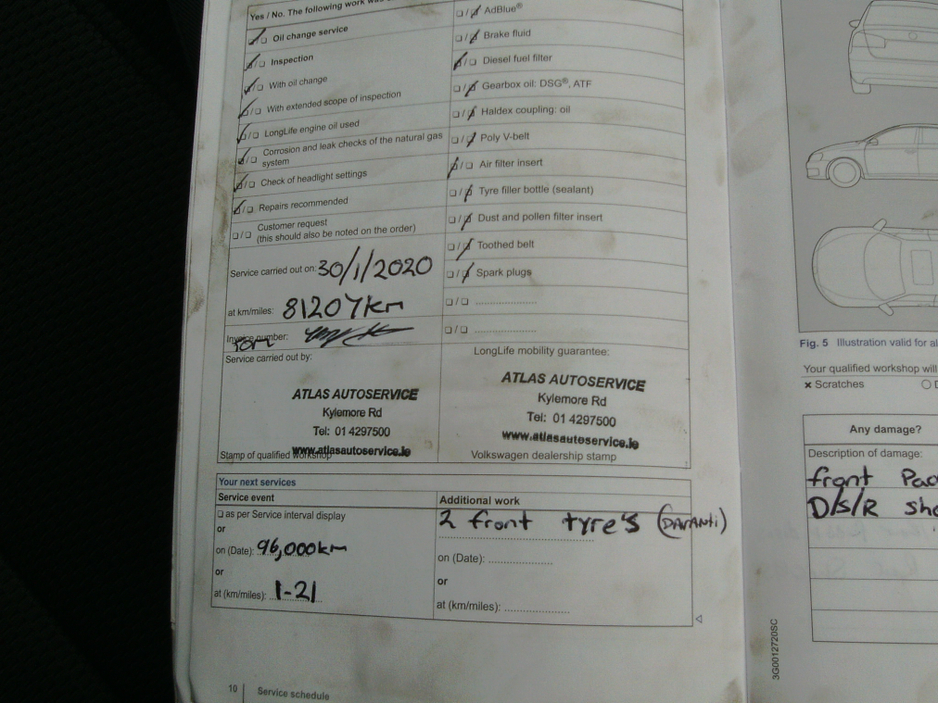 Yes / No. The following work was
Oil change service
Inspection
With oil change
With extended scope of inspection
LongLife engine oil used
Corrosion and leak checks of the natural gas
system
Check of headlight settings
Repairs recommended
Customer request
(this should also be noted on the order)
Service carried out on: 30/1/2020
at km/miles: 81207km
Invoice number:
Service carried out by:
ATLAS AUTOSERVICE
Kylemore Rd
Tel: 01 4297500
www.atlasautoservice.ie
Stamp of qualified workshop
AdBlue®
Brake fluid
Diesel fuel filter
Gearbox oil: DSG®, ATF
Haldex coupling: oil
Poly V-belt
Air filter insert
Tyre filler bottle (sealant)
Dust and pollen filter insert
Toothed belt
Spark plugs
LongLife mobility guarantee:
ATLAS AUTOSERVICE
Kylemore Rd
Tel: 01 4297500
www.atlasautoservice.ie
Volkswagen dealership stamp
Your next services
Service event
as per Service interval display
or
on (Date): 96,000km
or
at (km/miles): 1-21
Additional work
2 front tyre's (DAVANTI)
on (Date):
or
at (km/miles):
10 Service schedule
Fig. 5 Illustration valid for
Your qualified workshop will
Scratches
Any damage?
Description of damage:
front
D/S/R
3G0012720SC